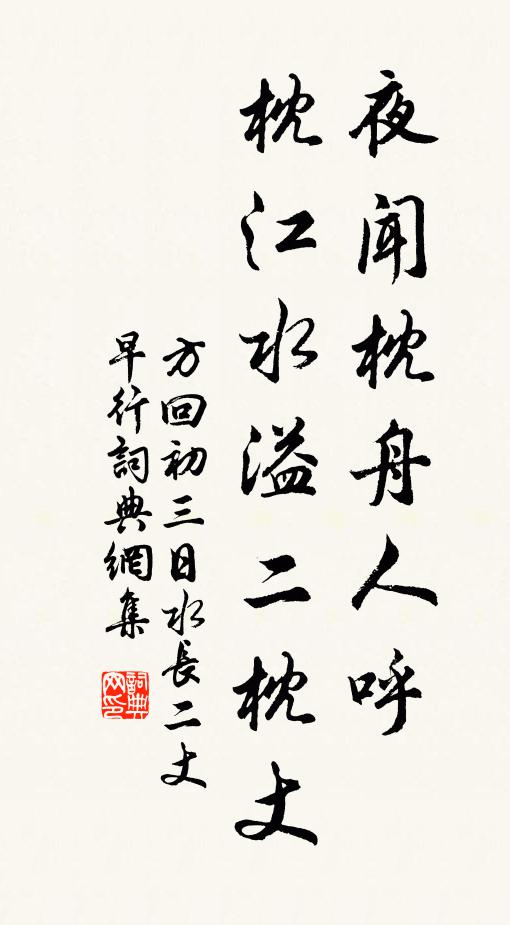 夜聞枕舟人呼
枕江水溢二枕丈
方回初三日水長二丈
早行詞典網集
詞典
网印